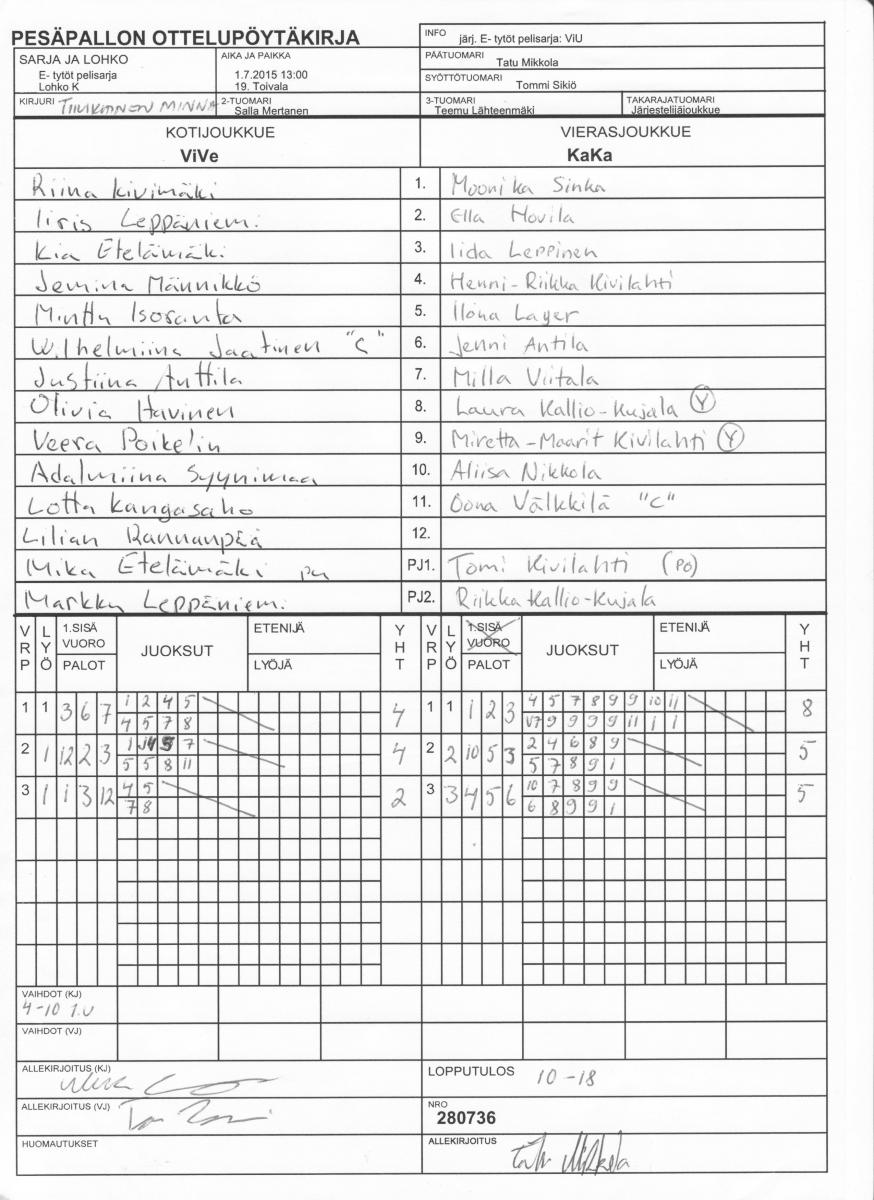 PESÄPALLON OTTELUPÖYTÄKIRJA
INFO järj. E- tytöt pelisarja: ViU
SARJA JA LOHKO
E- tytöt pelisarja
Lohko K
AIKA JA PAIKKA
1.7.2015 13:00
19. Toivala
PÄÄTUOMARI
Tatu Mikkola
SYÖTTÖTUOMARI
Tommi Sikiö
KIRJURI MINNA
2-TUOMARI
Salla Mertanen
3-TUOMARI
Teemu Lähteenmäki
TAKARAJATUOMARI
Järjestelijäjoukkue
KOTIJOUKKUE
ViVe
VIERASJOUKKUE
KaKa
Riina Kivimäki 1. Moonika Sinka
Iiris Leppäniemi 2. Ella Hovila
Kia Etelämäki 3. Iida Leppinen
Jemina Männikkö 4. Henni-Riikka Kivilahti
Minttu Isoranta 5. Ilona Lager
Wilhelmiina Jaatinen "C" 6. Jenni Antila
Justiina Anttila 7. Milla Viitala
Olivia Havinen 8. Laura Kallio-Kujala Y
Veera Poikelin 9. Miretta-Maarit Kivilahti Y
Adalmiina Syynimaa 10. Aliisa Nikkola
Lotta Kangasaho 11. Oona Välkkilä "C"
Lilian Rannanpää 12.
Mika Etelämäki PJ1. Tomi Kivilahti (PO)
Markku Leppäniemi PJ2. Riikka Kallio-Kujala
VRP LYÖ 1.SISÄ VUORO PALOT JUOKSUT ETENIJÄ LYÖJÄ YHT VRP LYÖ 1.SISÄ VUORO PALOT JUOKSUT ETENIJÄ LYÖJÄ YHT
1 1 3 6 7 1 2 4 5 4 1 1 1 2 3 4 5 7 8 9 9 10 11 8
4 5 7 8 V7 9 9 9 9 11 1 1
2 1 12 2 3 1 7 4 2 2 10 5 3 2 4 6 8 9 5
5 5 8 11 5 7 8 9 1
3 1 1 3 12 4 5 2 3 3 4 5 6 10 7 8 9 9 5
7 8 6 8 9 9 1
VAIHDOT (KJ)
4-10 1.U
VAIHDOT (VJ)
ALLEKIRJOITUS (KJ)
LOPPUTULOS 10-18
ALLEKIRJOITUS (VJ)
NRO
280736
HUOMAUTUKSET
ALLEKIRJOITUS